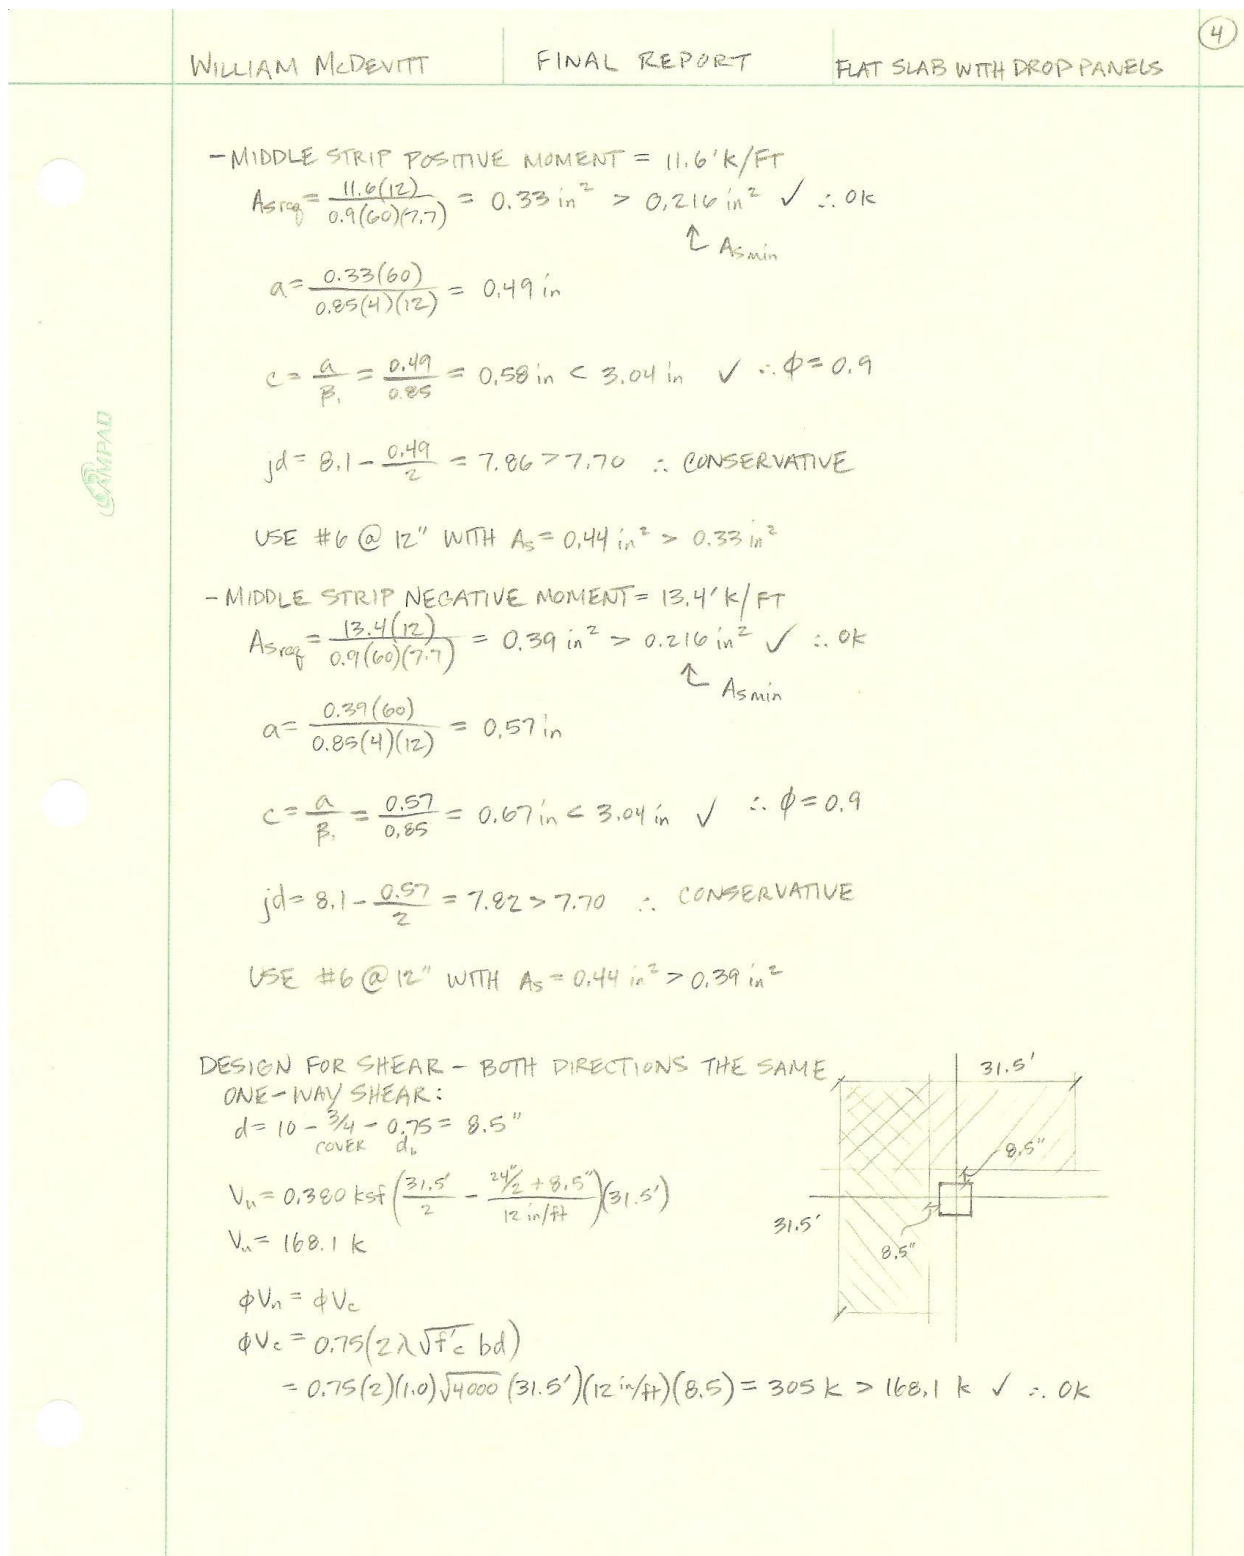 4
WILLIAM McDEVITT
FINAL REPORT
FLAT SLAB WITH DROP PANELS
- MIDDLE STRIP POSITIVE MOMENT = 11.6'k/FT
As req = 11.6(12) / 0.9(60)(7.7) = 0.33 in² > 0.216 in² ✓ ∴ OK
↑ As min
a = 0.33(60) / 0.85(4)(12) = 0.49 in
c = a / β₁ = 0.49 / 0.85 = 0.58 in < 3.04 in ✓ ∴ ϕ = 0.9
jd = 8.1 - 0.49 / 2 = 7.86 > 7.70 ∴ CONSERVATIVE
USE #6 @ 12" WITH As = 0.44 in² > 0.33 in²
- MIDDLE STRIP NEGATIVE MOMENT = 13.4'k/FT
As req = 13.4(12) / 0.9(60)(7.7) = 0.39 in² > 0.216 in² ✓ ∴ OK
↑ As min
a = 0.39(60) / 0.85(4)(12) = 0.57 in
c = a / β₁ = 0.57 / 0.85 = 0.67 in < 3.04 in ✓ ∴ ϕ = 0.9
jd = 8.1 - 0.57 / 2 = 7.82 > 7.70 ∴ CONSERVATIVE
USE #6 @ 12" WITH As = 0.44 in² > 0.39 in²
DESIGN FOR SHEAR - BOTH DIRECTIONS THE SAME
ONE-WAY SHEAR:
d = 10 - 3/4 - 0.75 = 8.5"
COVER d_b
Vu = 0.380 ksf (31.5' / 2 - 24"/2 + 8.5" / 12 in/ft)(31.5')
Vu = 168.1 k
ϕVn = ϕVc
ϕVc = 0.75(2λ√f'c bd)
= 0.75(2)(1.0)√4000 (31.5')(12 in/ft)(8.5) = 305 k > 168.1 k ✓ ∴ OK
31.5'
8.5"
31.5'
8.5"
AMPAD